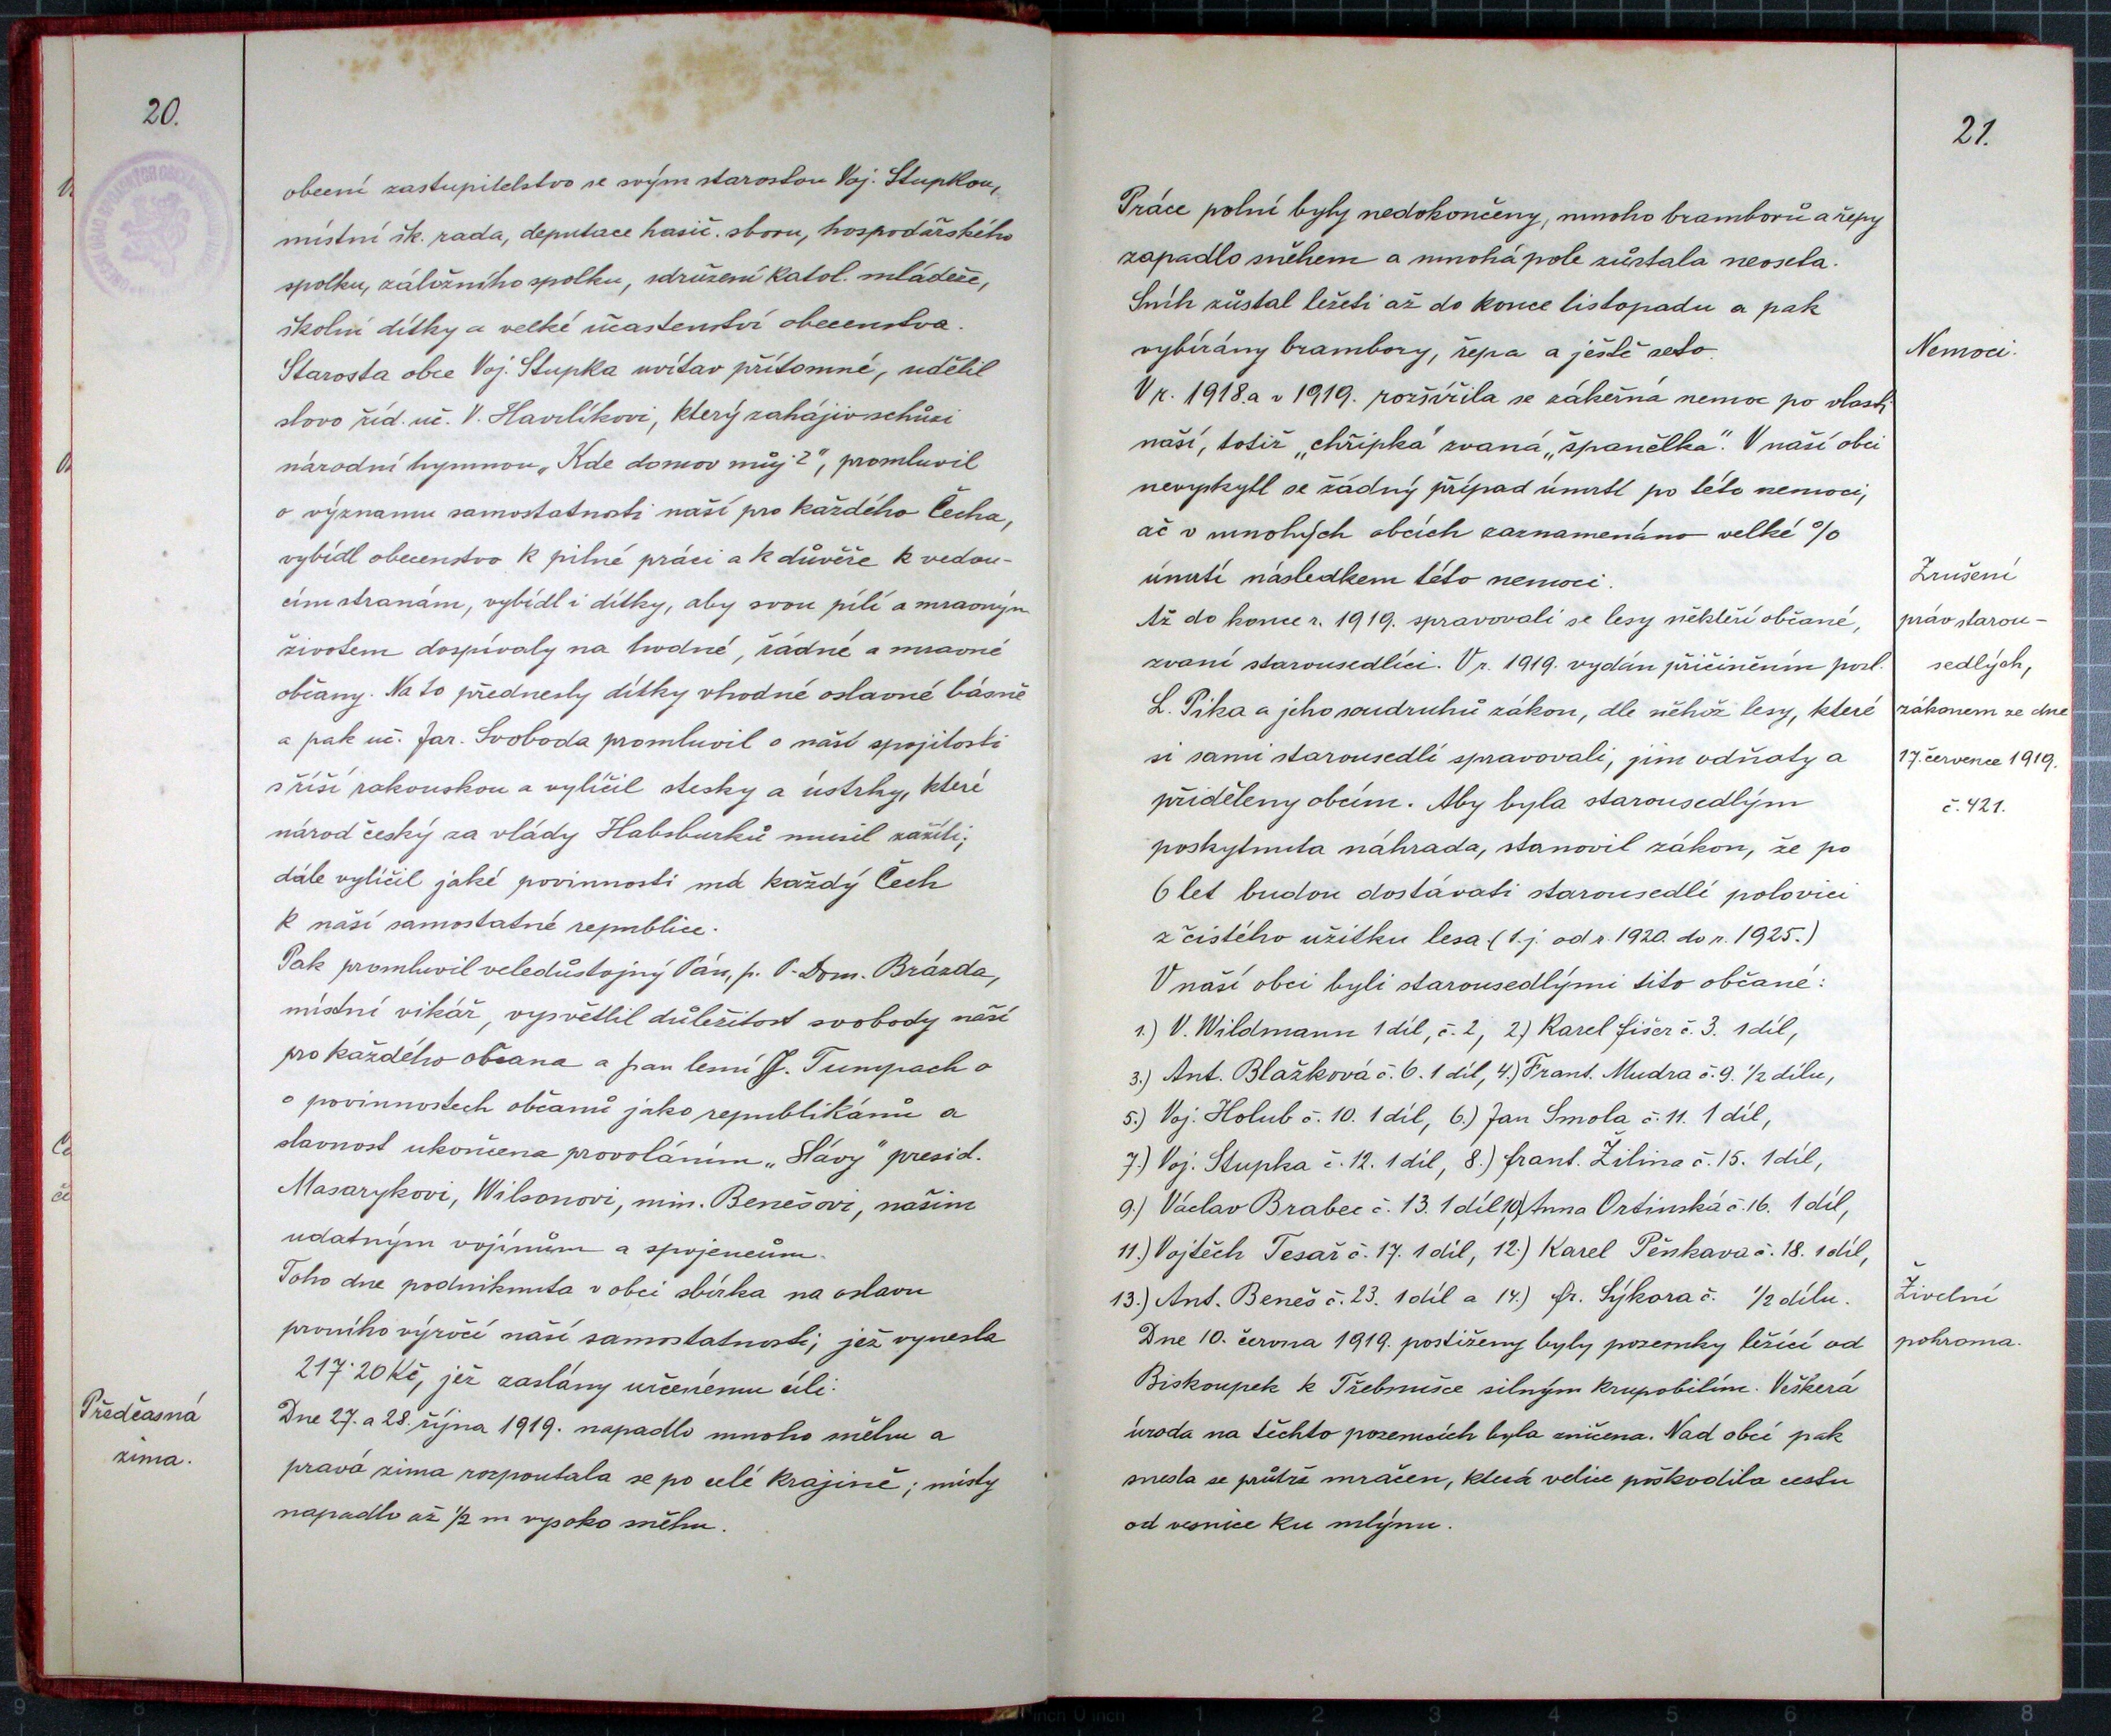 20.
obecní zastupitelstvo se svým starostou Voj. Stupkou,
místní šk. rada, deputace hasič. sboru, hospodářského
spolku, záložního spolku, sdružení katol. mládeže,
školní dítky a velké účastenství obecenstva.
Starosta obce Voj. Stupka uvítav přítomné, udělil
slovo říd. uč. V. Havrlíkovi, který zahájiv schůzi
národní hymnou „Kde domov můj?", promluvil
o významu samostatnosti naší pro každého Čecha,
vybídl obecenstvo k pilné práci a k důvěře k vedou-
cím stranám, vybídl i dítky, aby svou pílí a mravným
životem dospívaly na hodné, řádné a mravné
občany. Na to přednesly dítky vhodné oslavné básně
a pak uč. Jar. Svoboda promluvil o naší spojitosti
s říší rakouskou a vylíčil stesky a ústrky, které
národ český za vlády Habsburků musil zažíti;
dále vylíčil jaké povinnosti má každý Čech
k naší samostatné republice.
Pak promluvil veledůstojný Pán, p. P. Dom. Brázda,
místní vikář, vysvětlil důležitost svobody naší
pro každého občana a pan lesní J. Tumpach o
o povinnostech občanů jako republikánů a
slavnost ukončena provoláním „Slávy" presid.
Masarykovi, Wilsonovi, min. Benešovi, našim
udatným vojínům a spojencům.
Toho dne podniknuta v obci sbírka na oslavu
prvního výročí naší samostatnosti; jež vynesla
217·20 Kč, jež zaslány určenému cíli.
Předčasná
zima.
Dne 27. a 28. října 1919. napadlo mnoho sněhu a
pravá zima rozpoutala se po celé krajině; místy
napadlo až 1/2 m vysoko sněhu.
21.
Práce polní byly nedokončeny, mnoho bramborů a řepy
zapadlo sněhem a mnohá pole zůstala neoseta.
Sníh zůstal ležeti až do konce listopadu a pak
vybírány brambory, řepa a ještě seto.
Nemoci.
V r. 1918. a v 1919. rozšířila se zákeřná nemoc po vlasti
naší, totiž „chřipka" zvaná „španělka". V naší obci
nevyskytl se žádný případ úmrtí po této nemoci,
ač v mnohých obcích zaznamenáno velké %
úmrtí následkem této nemoci.
Zrušení
práv starou-
sedlých,
zákonem ze dne
17. července 1919.
č. 421.
Až do konce r. 1919. spravovali se lesy někteří občané,
zvaní starousedlíci. V r. 1919. vydán přičiněním posl.
L. Pika a jeho soudruhů zákon, dle něhož lesy, které
si sami starousedlí spravovali, jim odňaty a
přiděleny obcím. Aby byla starousedlým
poskytnuta náhrada, stanovil zákon, že po
6 let budou dostávati starousedlí polovici
z čistého užitku lesa (t.j. od r. 1920. do r. 1925.)
V naší obci byli starousedlými tito občané:
1.) V. Wildmann 1 díl, č. 2, 2.) Karel Fišer č. 3. 1 díl,
3.) Ant. Blažková č. 6. 1 díl, 4.) Frant. Mudra č. 9. 1/2 dílu,
5.) Voj. Holub č. 10. 1 díl, 6.) Jan Smola č. 11. 1 díl,
7.) Voj. Stupka č. 12. 1 díl, 8.) Frant. Žilina č. 15. 1 díl,
9.) Václav Brabec č. 13. 1 díl, 10.) Anna Ortinská č. 16. 1 díl,
11.) Vojtěch Tesař č. 17. 1 díl, 12.) Karel Pěnkava č. 18. 1 díl,
13.) Ant. Beneš č. 23. 1 díl a 14.) Fr. Sýkora č. 1/2 dílu.
Živelní
pohroma.
Dne 10. června 1919. postiženy byly pozemky ležící od
Biskoupek k Třebnušce silným krupobitím. Veškerá
úroda na těchto pozemcích byla zničena. Nad obcí pak
snesla se průtrž mračen, která velice poškodila cestu
od vesnice ku mlýnu.